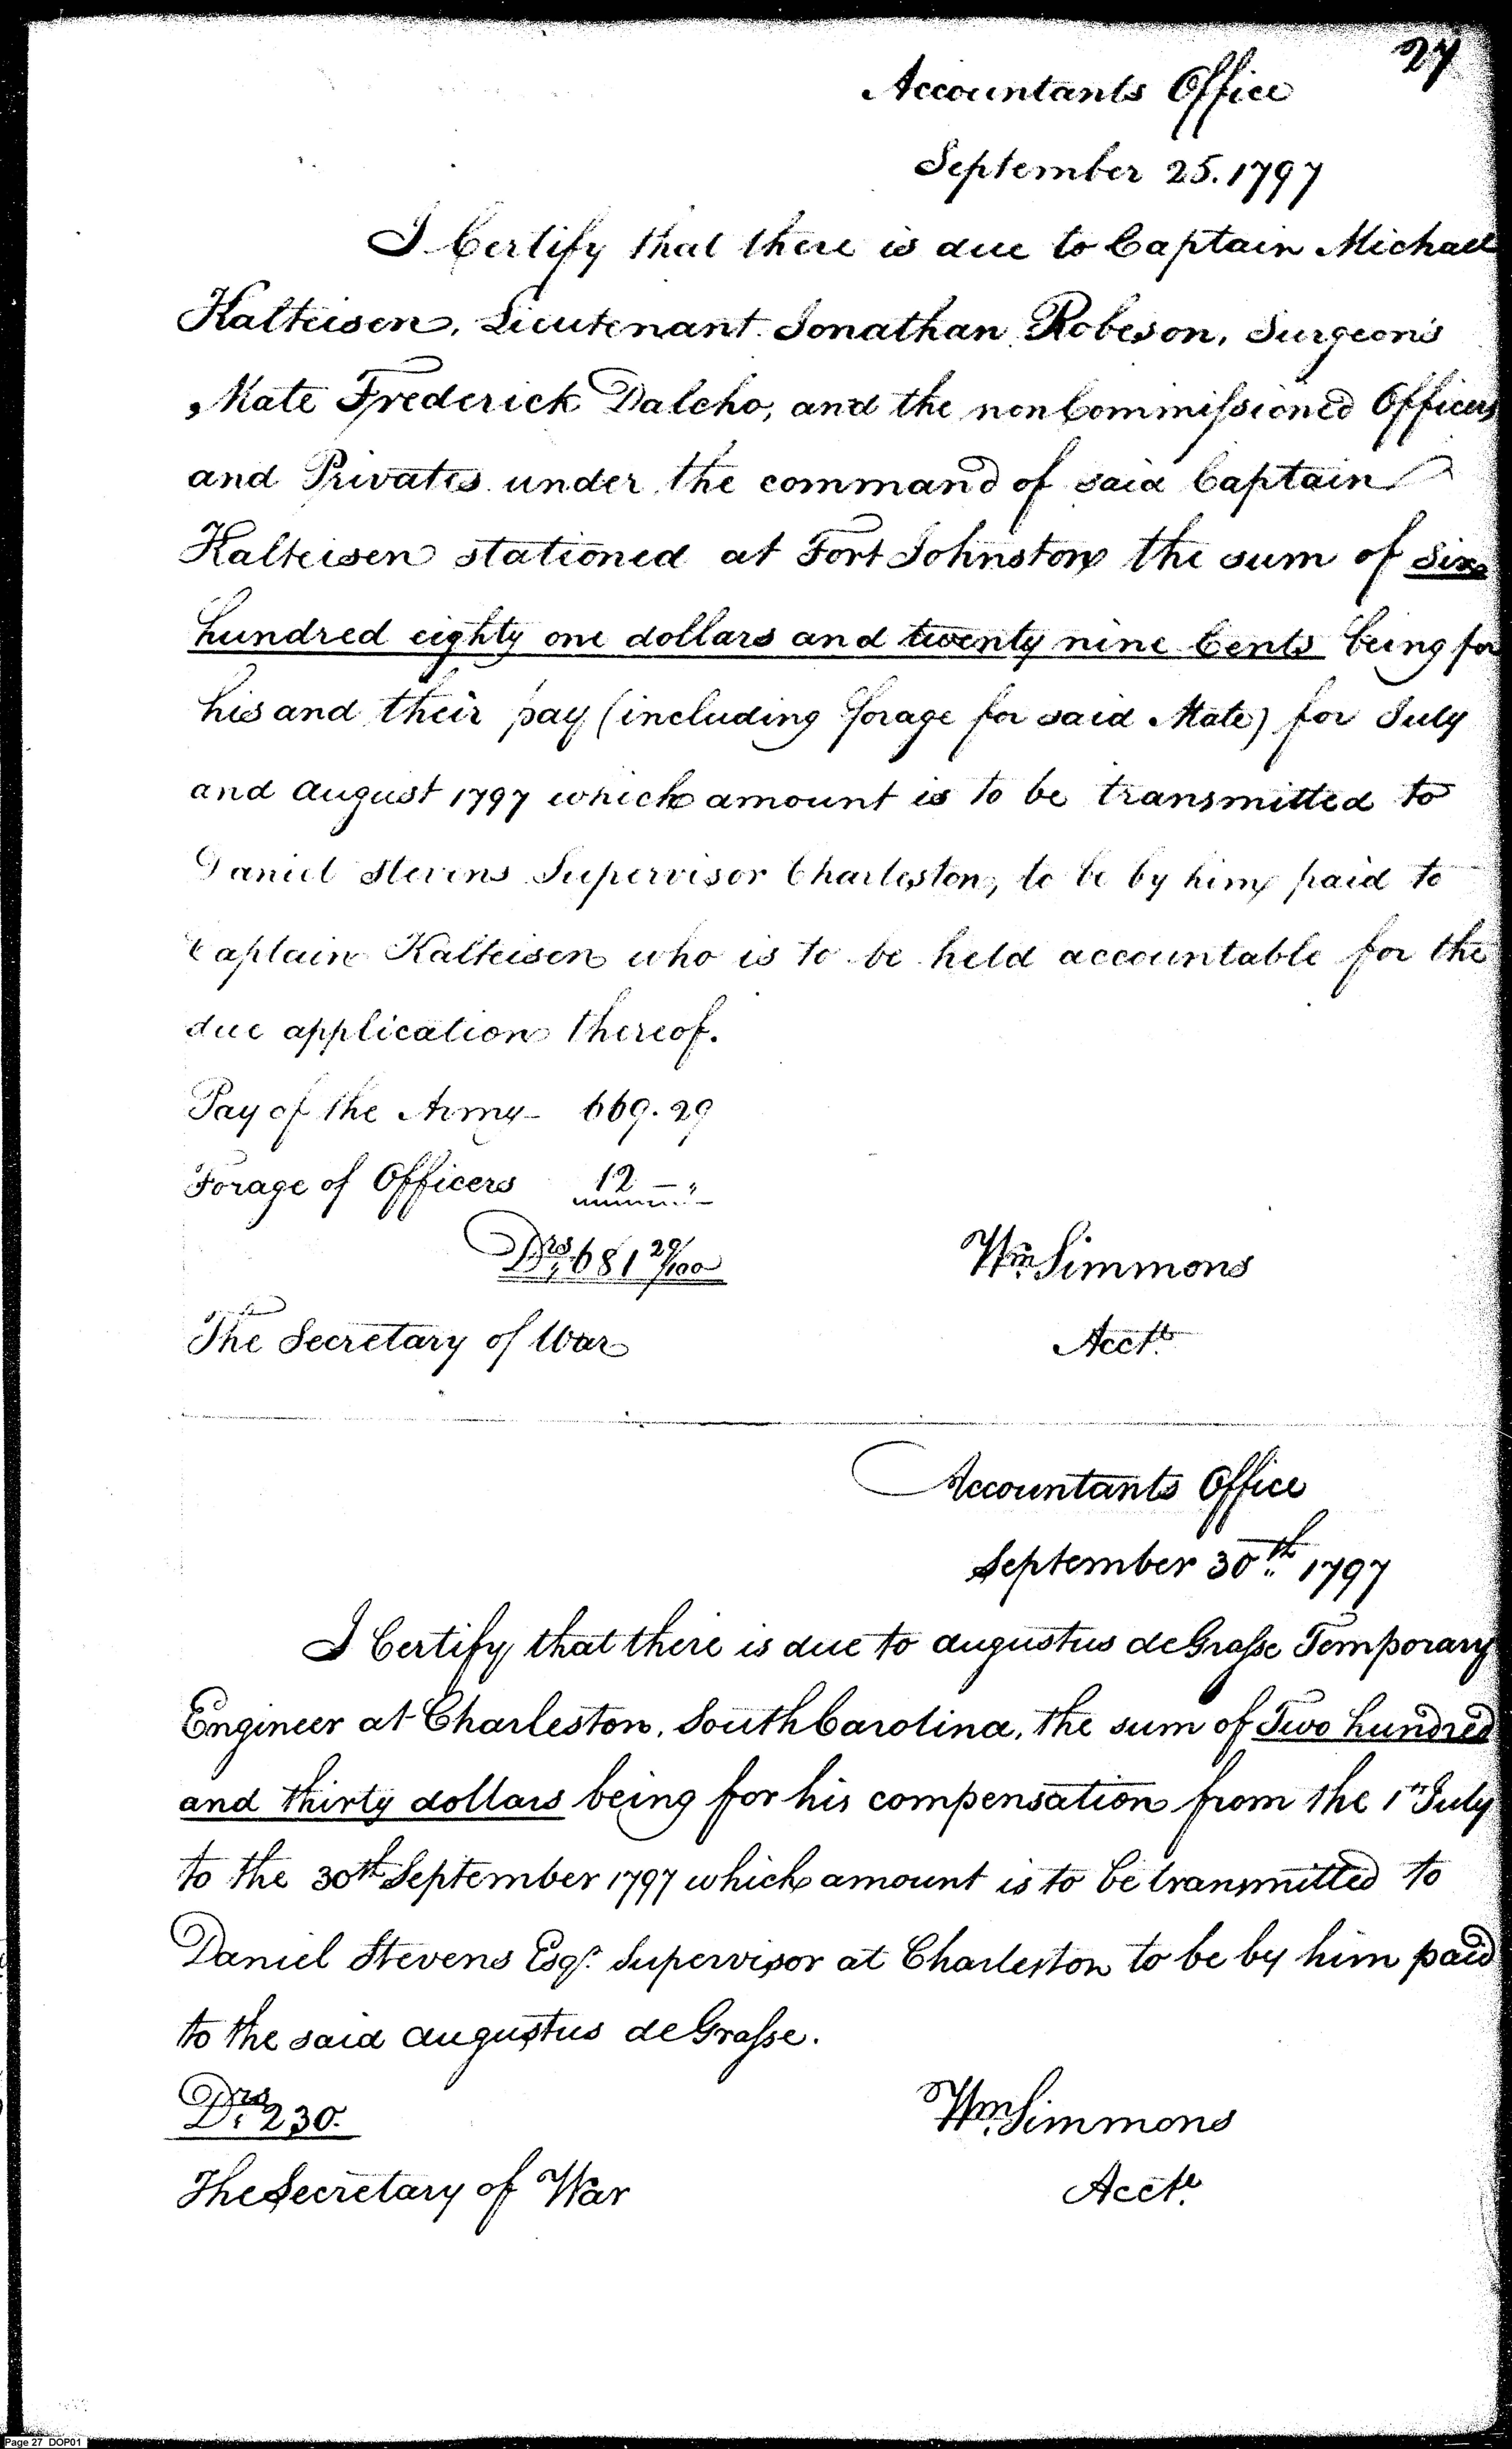 27
Accountants Office
September 25. 1797
I Certify that there is due to Captain Michael
Kalteisen, Lieutenant Jonathan Robeson, Surgeon's
Mate Frederick Dalcho, and the non Commissioned Officers
and Privates under the command of said Captain
Kalteisen stationed at Fort Johnston the sum of Six
hundred eighty one dollars and twenty nine Cents being for
his and their pay (including forage for said Mate) for July
and August 1797 which amount is to be transmitted to
Daniel Stevens Supervisor Charleston, to be by him paid to
Captain Kalteisen who is to be held accountable for the
due application thereof.
Pay of the Army - 669.29
Forage of Officers 12 - "
Drs. 681 29/100
Wm. Simmons
The Secretary of War
Acct.
Accountants Office
September 30th 1797
I Certify that there is due to Augustus deGrasse Temporary
Engineer at Charleston, South Carolina, the sum of Two hundred
and thirty dollars being for his compensation from the 1st July
to the 30th September 1797 which amount is to be transmitted to
Daniel Stevens Esqr. Supervisor at Charleston to be by him paid
to the said Augustus deGrasse.
Drs. 230.
Wm. Simmons
The Secretary of War
Acct.
Page 27 DOP01